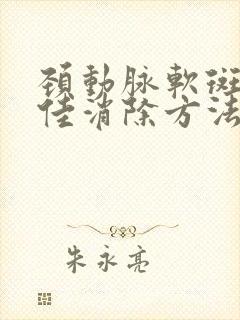 頚動脉軟斑
佳消除方法
朱永亮